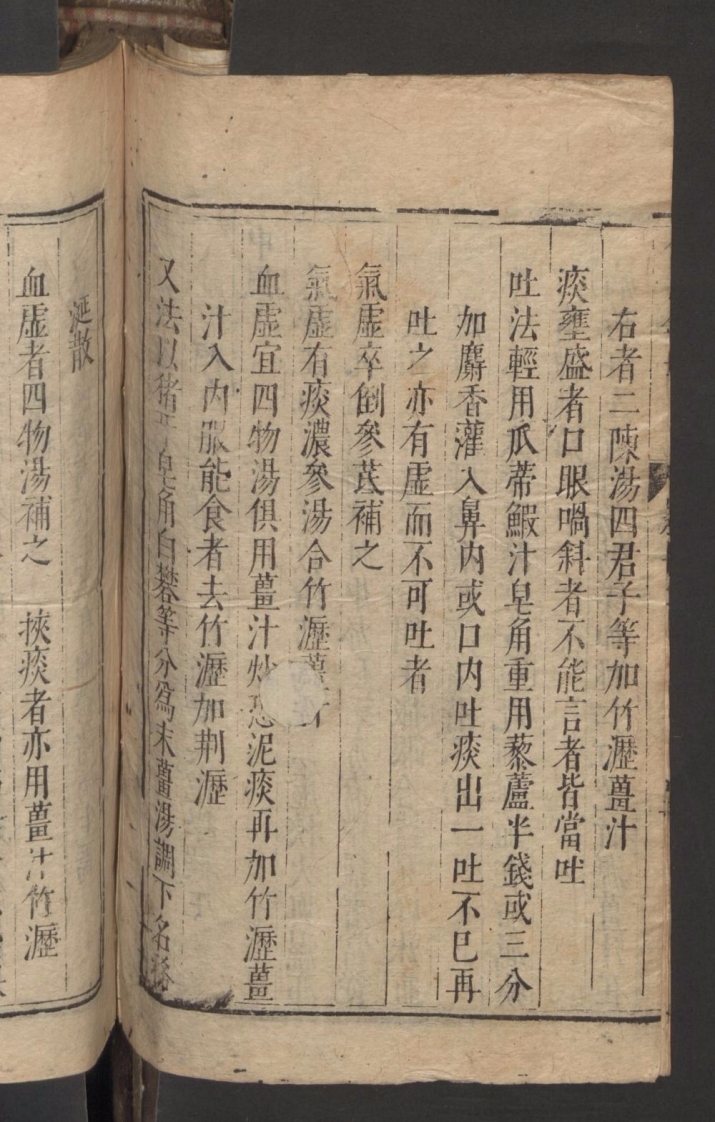 右者二陳湯四君子等加竹瀝薑汁
痰壅盛者口眼喎斜者不能言者皆當吐
吐法輕用瓜蒂鰕汁皂角重用藜蘆半錢或三分
加麝香灌入鼻内或口内吐痰出一吐不已再
吐之亦有虛而不可吐者
氣虛卒倒參芪補之
氣虛有痰濃參湯合竹瀝薑汁
血虛宜四物湯俱用薑汁炒恐泥痰再加竹瀝薑
汁入内服能食者去竹瀝加荆瀝
又法以猪牙皂角白礬等分爲末薑湯調下名
涎散
血虛者四物湯補之 挾痰者亦用薑汁竹瀝